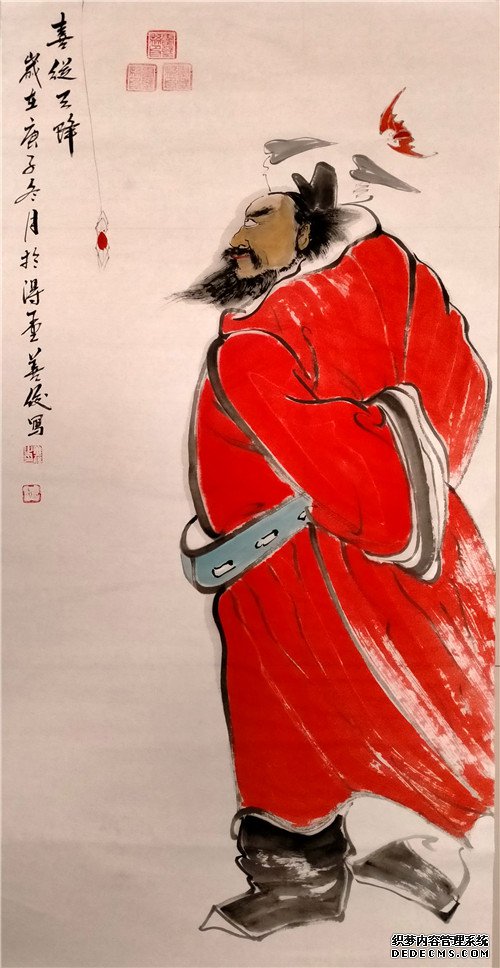 喜從天降
歲在庚子冬月於得善寫
织梦内容管理系统
DEDECMS.COM